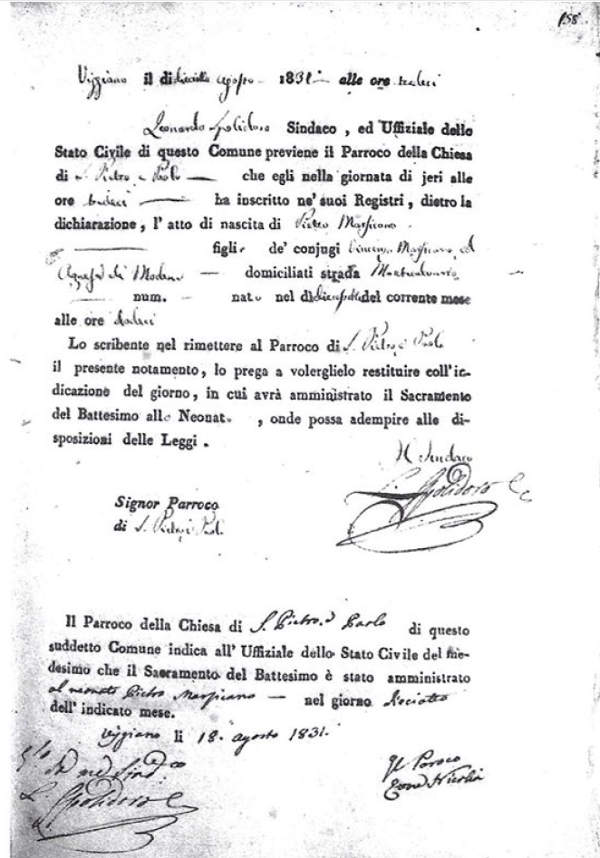 158
Viggiano il dì dieciotto agosto 1831 alle ore tredeci
Leonardo Spolidoro Sindaco, ed Uffiziale dello
Stato Civile di questo Comune previene il Parroco della Chiesa
di S. Pietro e Paolo — che egli nella giornata di jeri alle
ore tredeci — ha inscritto ne' suoi Registri, dietro la
dichiarazione, l' atto di nascita di Pietro Marsicano
— figli de' conjugi Vincenzo Marsicano ed
di — domiciliati strada
— num. — nato nel dì del corrente mese
alle ore
Lo scribente nel rimettere al Parroco di S. Pietro e Paolo
il presente notamento, lo prega a volerglielo restituire coll' in-
dicazione del giorno, in cui avrà amministrato il Sacramento
del Battesimo allo Neonat , onde possa adempire alle di-
sposizioni delle Leggi.
Il Sindaco
L. Spolidoro
Signor Parroco
di S. Pietro e Paolo
Il Parroco della Chiesa di S. Pietro e Paolo di questo
suddetto Comune indica all' Uffiziale dello Stato Civile del me-
desimo che il Sacramento del Battesimo è stato amministrato
al neonato Pietro Marsicano — nel giorno dieciotto
dell' indicato mese.
Viggiano li 18. agosto 1831.
Il Parroco
L. Spolidoro